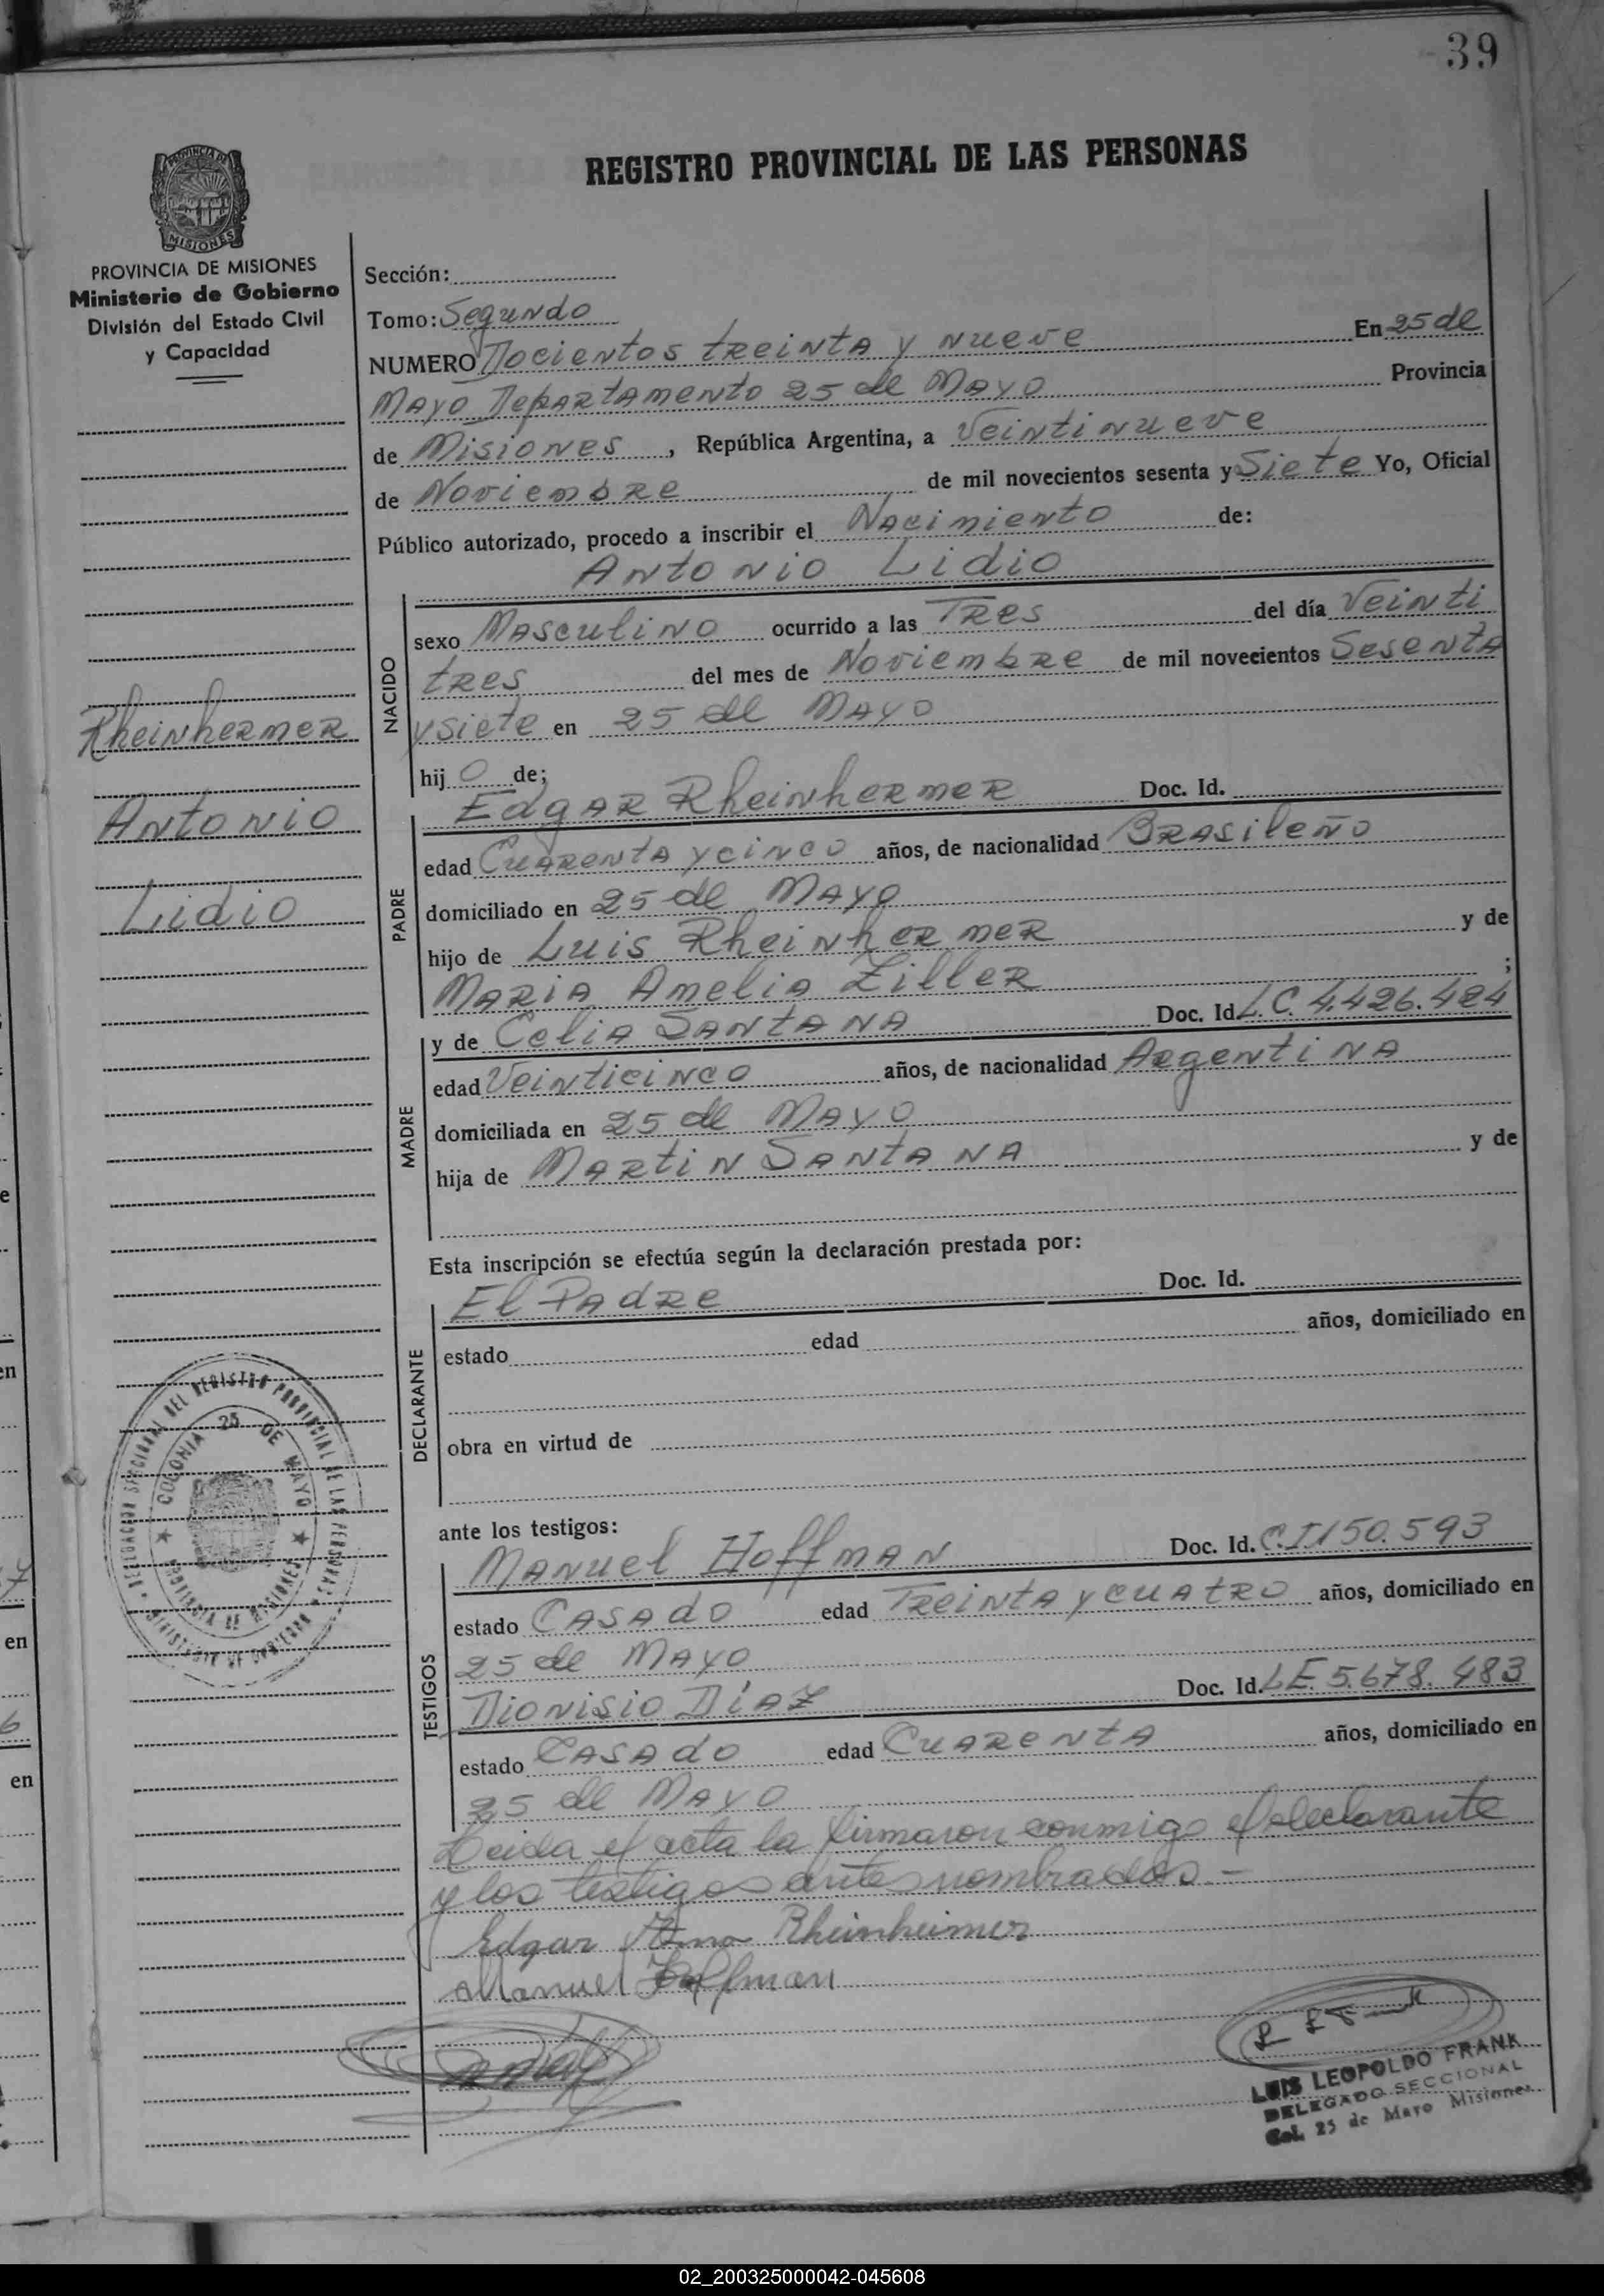 39
REGISTRO PROVINCIAL DE LAS PERSONAS
PROVINCIA DE MISIONES
Ministerio de Gobierno
División del Estado Civil
y Capacidad
Rheinhermer
Antonio
Lidio
Sección:
Tomo: Segundo
NUMERO Docientos treinta y nueve En 25 de
Mayo Departamento 25 de Mayo Provincia
de Misiones, República Argentina, a Veintinueve
de Noviembre de mil novecientos sesenta y Siete Yo, Oficial
Público autorizado, procedo a inscribir el Nacimiento de:
Antonio Lidio
NACIDO
sexo Masculino ocurrido a las Tres del día Veinti
tres del mes de Noviembre de mil novecientos Sesenta
y siete en 25 de Mayo
hijo de;
PADRE
Edgar Rheinhermer Doc. Id.
edad Cuarenta y cinco años, de nacionalidad Brasileño
domiciliado en 25 de Mayo
hijo de Luis Rheinhermer y de
Maria Amelia Ziller ;
MADRE
y de Celia Santana Doc. Id. L.C. 4.426.424
edad Veinticinco años, de nacionalidad Argentina
domiciliada en 25 de Mayo
hija de Martin Santana y de
Esta inscripción se efectúa según la declaración prestada por:
DECLARANTE
El Padre Doc. Id.
estado edad años, domiciliado en
obra en virtud de
ante los testigos:
TESTIGOS
Manuel Hoffman Doc. Id. C.I 150.593
estado Casado edad Treinta y cuatro años, domiciliado en
25 de Mayo
Dionisio Díaz Doc. Id. L.E. 5.678.483
estado Casado edad Cuarenta años, domiciliado en
25 de Mayo
Leida el acta la firmaron conmigo el declarante
y los testigos antes nombrados.-
Edgar Rheinheimer
Manuel Hoffman
LUIS LEOPOLDO FRANK
DELEGADO SECCIONAL
Col. 25 de Mayo Misiones
DELEGACION SECCIONAL DEL REGISTRO PROVINCIAL DE LAS PERSONAS
MINISTERIO DE GOBIERNO
COLONIA 25 DE MAYO
PROVINCIA DE MISIONES
02_200325000042-045608